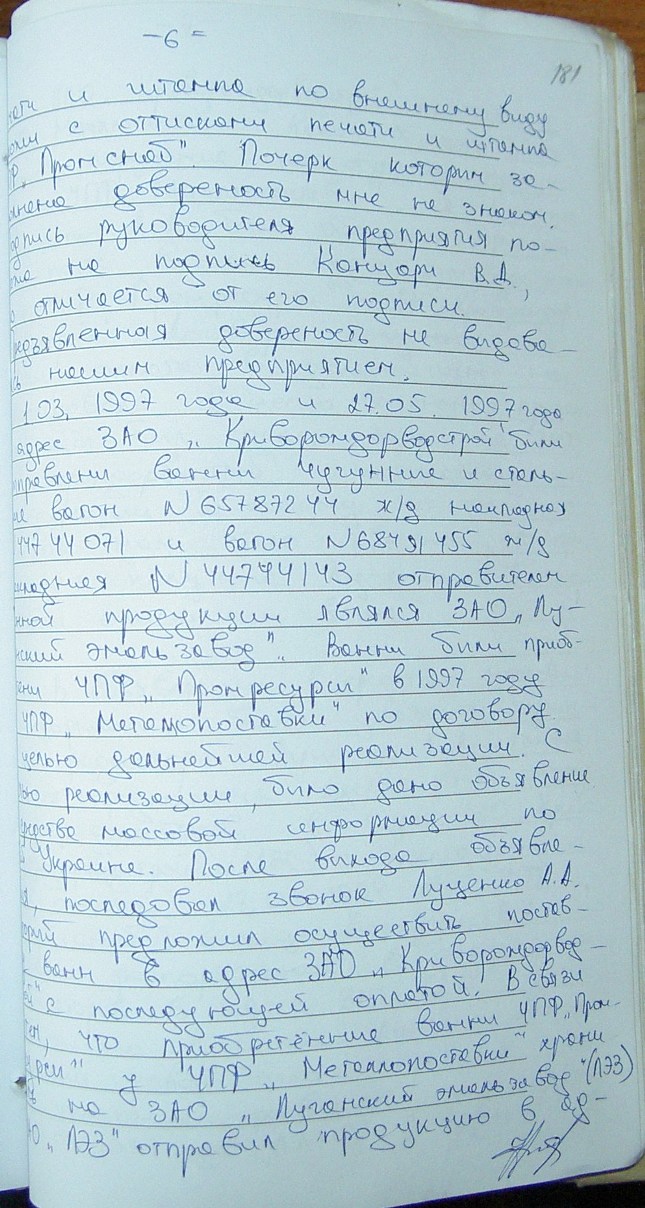 -6=
181
чати и штампа по внешнему виду
ожи с оттисками печати и штампа
"Промснаб". Почерк которим за-
лнена довереность мне не знаком.
одпись руководителя предприятия по-
жа на подпись Канцари В.Д.,
о отличается от его подписи.
редъявленная довереность не видава-
сь нашим предприятием.
1.03. 1997 года и 27.05. 1997 года
адрес ЗАО „Криворождорводстрой" били
правлени ванни чугунние и сталь-
е вагон N 65787244 ж/д накладная
44744071 и вагон N 68491455 ж/д
кладная N 44744143 отправителем
нной продукции являлся ЗАО „Лу-
нский эмальзавод". Ванни били приоб-
ени ЧПФ „Промресурси" в 1997 году
ЧПФ „Металлопоставки" по договору
целью дальнейшей реализации. С
ью реализации, било дано объявление
средства массовой информации по
Украине. После вихода объявле-
я, последовал звонок Луценко А.А.
орий предложил осуществить постав-
ванн в адрес ЗАО „Криворождорвод-
ой" с последующей оплатой. В связи
тем, что приобретённие ванни ЧПФ „Пром-
рси" у ЧПФ „Металлопоставки" храни
на ЗАО „Луганский эмальзавод" (ЛЭЗ)
АО „ЛЭЗ" отправил продукцию в ад-